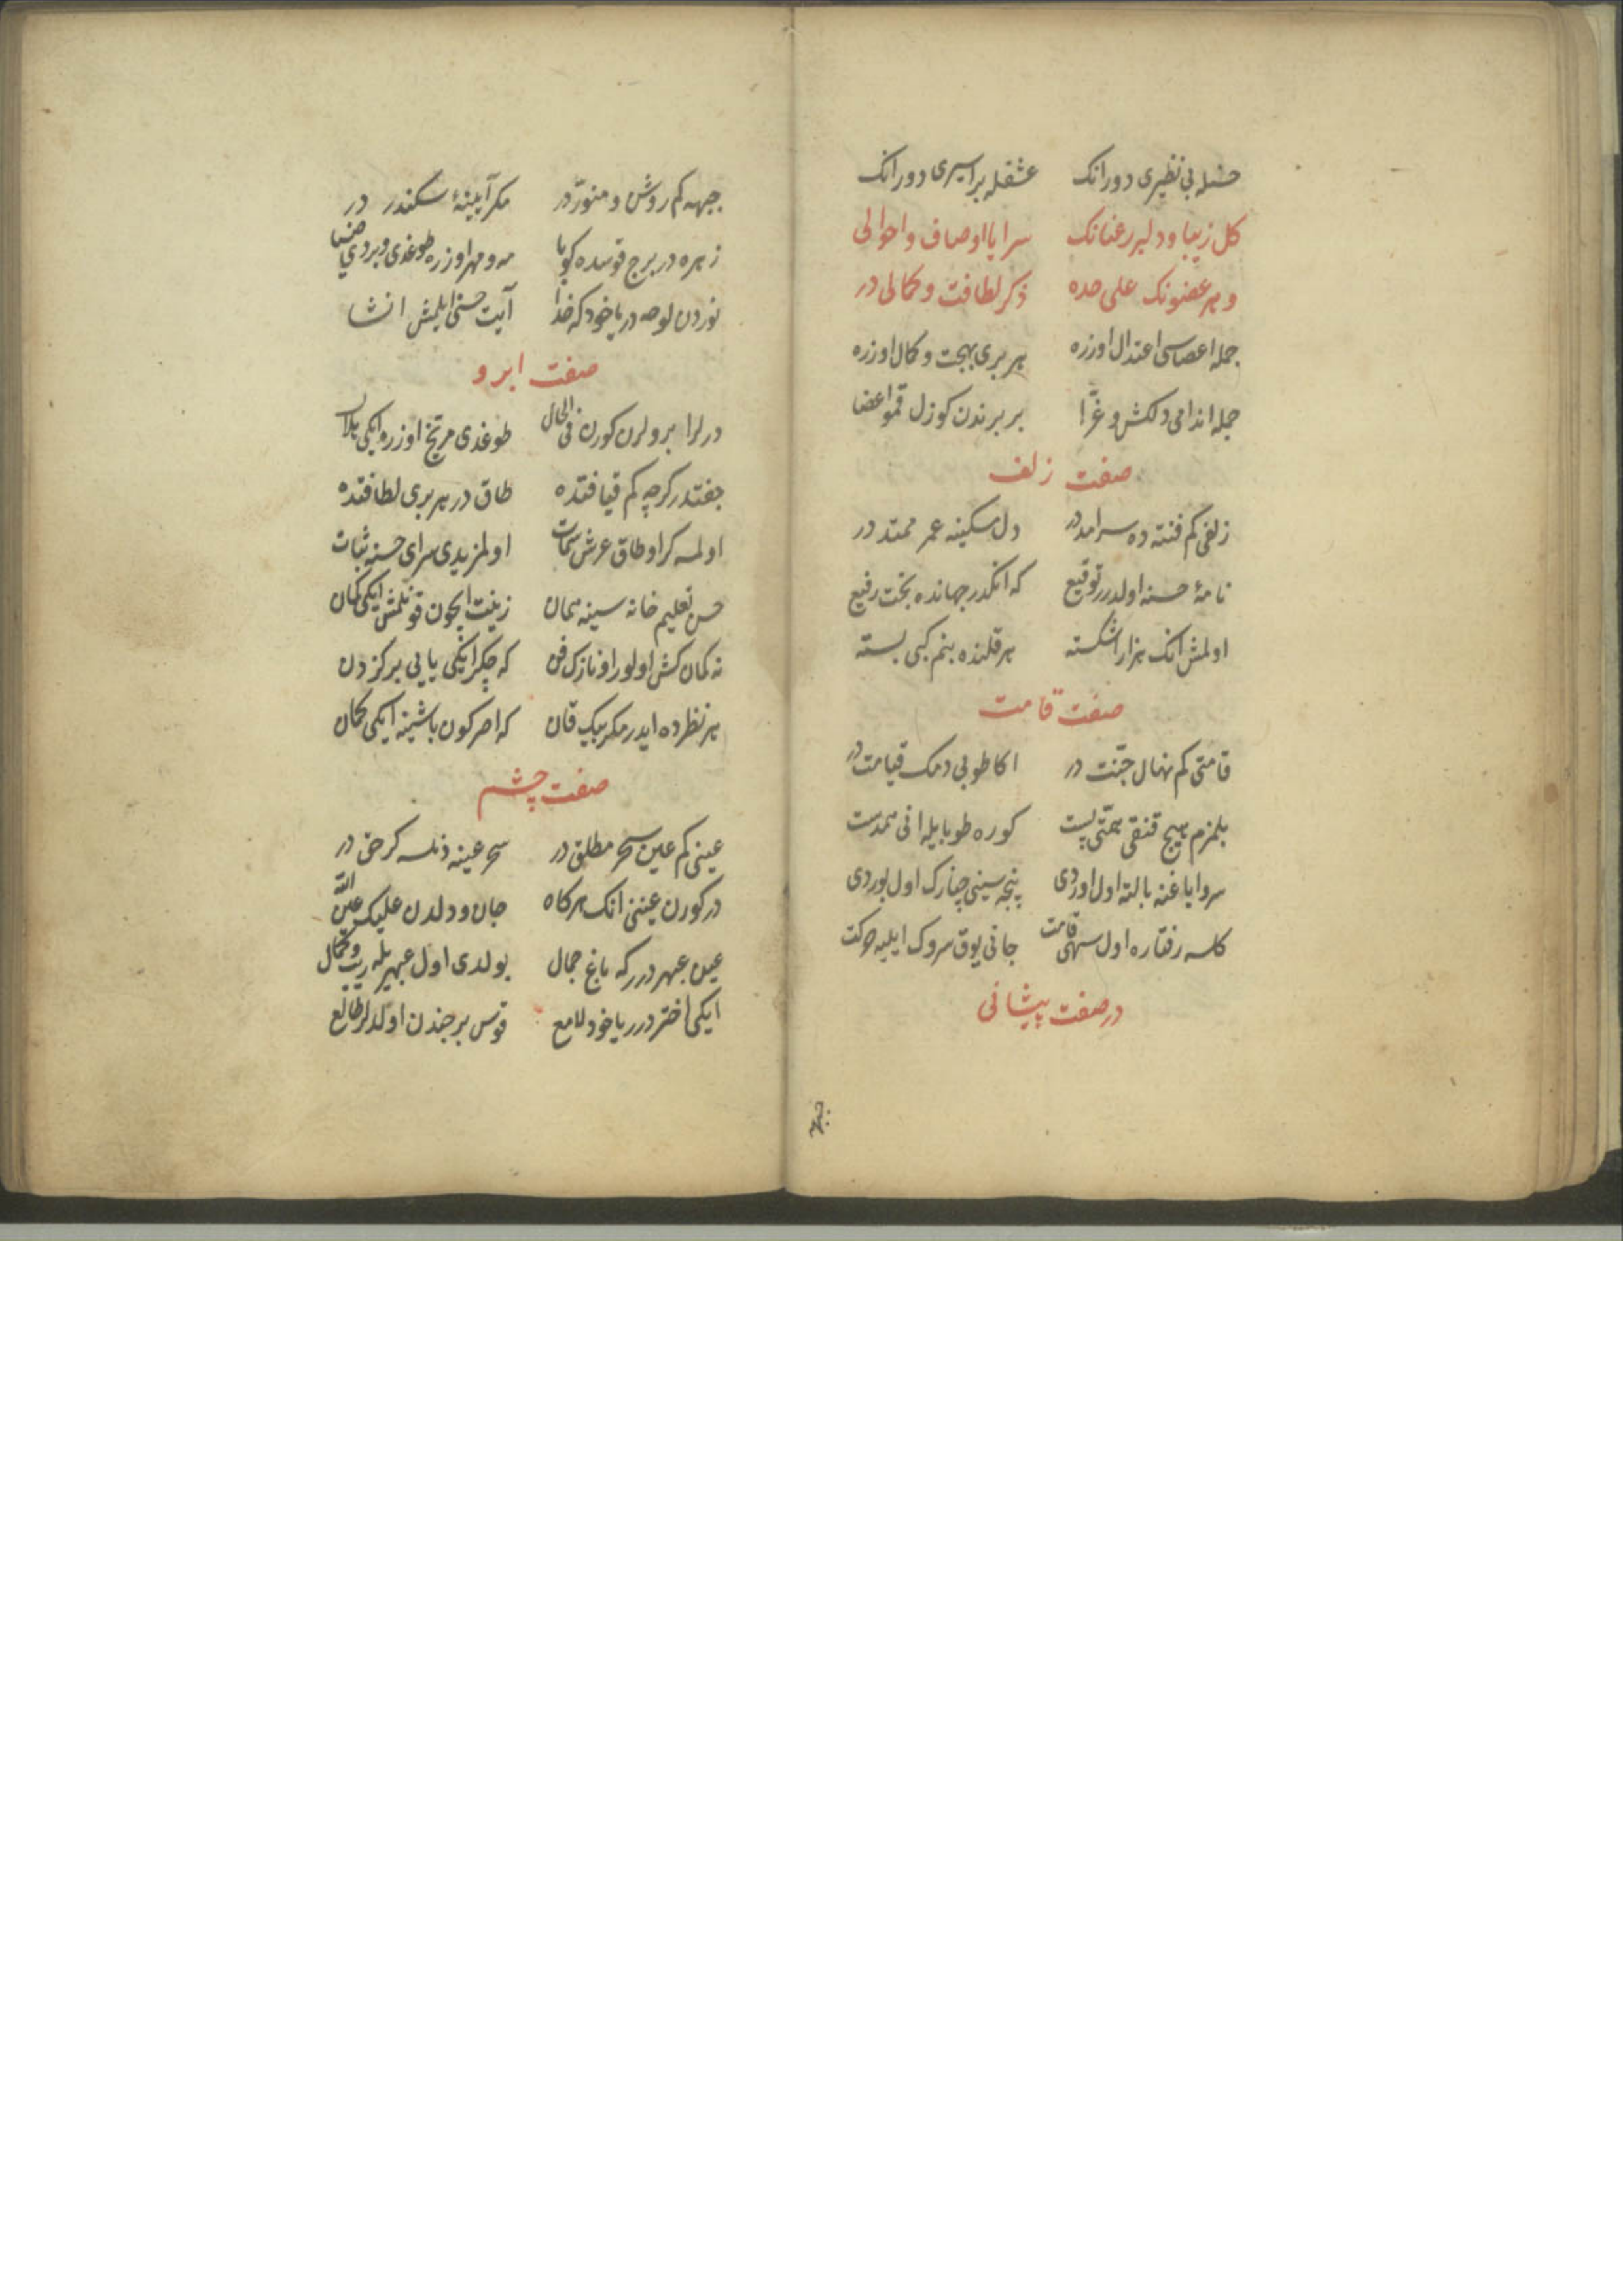 حسنله بی نظیری دورانک عشقله بر اسیری دورانک
کل زیبا و دلبر رعنانک سراپا اوصاف و احوالی
و هر عضونک علی حده ذکر لطافت و کمالی در
جمله اعضاسی اعتدال اوزره هر بری بهجت و کمال اوزره
جمله اندامی دلکش و غرّا بر برندن کوزل قمو اعضا
صفت زلف
زلفی کم فتنه ده سرامددر دل مسکینه عمر ممتد در
نامهٔ حسنه اولدرر توقیع که انکدر جهانده بخت رفیع
اولمش انک هزار اشکسته هر قلنده بنم کبی بسته
صفت قامت
قامتی کم نهال جنّت در اکا طوبی دمک قیامت در
بلمزم هیچ قنقی همّتی پست کوره طوبایله انی همدست
سروایاغنه بالته اول اوردی پنجه سینی چنارک اول بوردی
کلسه رفتاره اول سهی قامت جانی یوق سروک ایلیه حرکت
در صفت پیشانی
جبهه
جبهه کم روشن و منوّر در مکر آیینهٔ سکندر در
زهره در برج قوسده کویا مه و مهر اوزره طوغدی ویردی ضیا
نوردن لوحه در یاخود که خدا آیت حسنی ایلمش انشا
صفت ابرو
درلر ابرولرن کورن فی الحال طوغدی مریخ اوزره ایکی هلال
جفتدر کرچه کم قیافتده طاق در هر بری لطافتده
اولمسه کر او طاق عرش سمات اولمزیدی سرای حسنه ثبات
حسن تعلیم خانه سینه همان زینت ایچون قونلمش ایکی کمان
نه کمان کش اولور او نازک فن که چکر ایکی یایی بر کزدن
هر نظرده ایدر مکر بیک قان که اصر کون باشینه ایکی کمان
صفت چشم
عینی کم عین سحر مطلق در سحر عینه دنلسه کر حق در
در کورن عیننی انک هرکاه جان و دلدن علیک عین الله
عین عبهر درر که باغ جمال بولدی اول عبهریله زیب و کمال
ایکی اختر درر یاخود لامع قوس برجندن اولدلر طالع